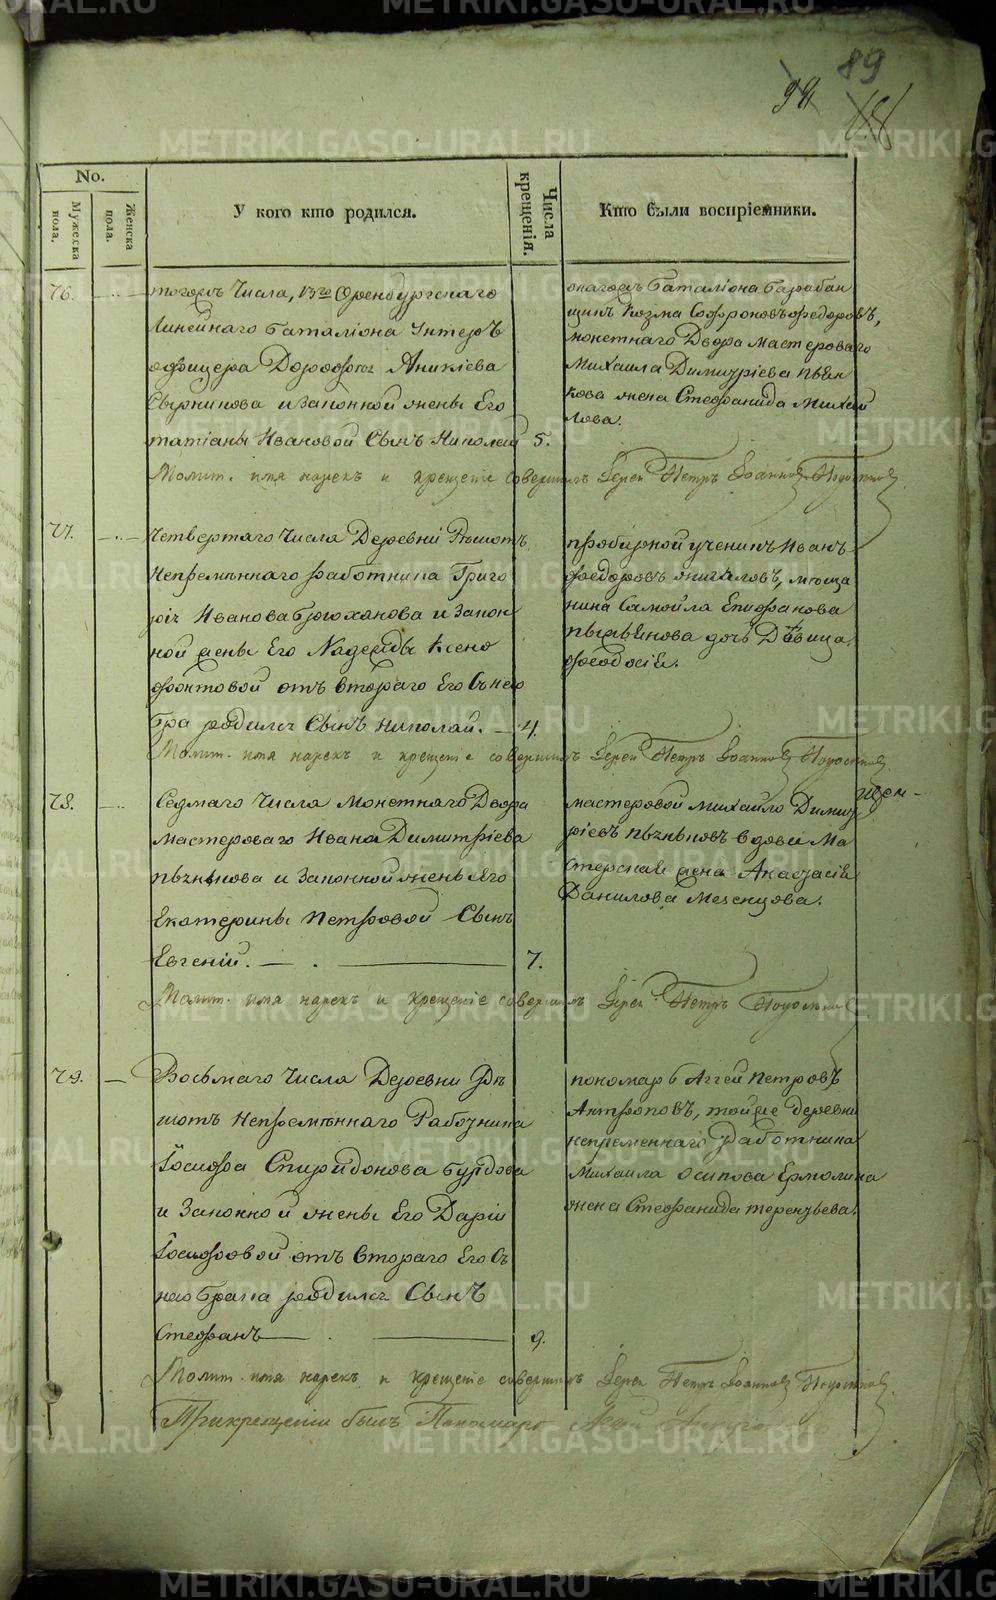 89
No.
Мужеска пола.
Женска пола.
У кого кто родился.
Числа крещенія.
Кто были воспріемники.
76.
тогожъ Числа, 13го Оренбургскаго
Линейнаго Баталіона Унтеръ
офицера Дорофея Аникіева
и Законной жены Его
татіаны Ивановой Сынъ Николай 5.
онагожъ Баталіона барабан
щикъ Козма Софроновъ Федоровъ,
монетнаго Двора мастероваго
Михаила Димитріева
жена Стефанида Михай
лова.
Молит. имя нарекъ и крещеніе совершилъ Іерей Петръ Іоанновъ
77.
Четвертаго Числа Деревни Решотъ
Непремѣннаго работника Григо
рія Иванова брюханова и Закон
ной жены Его Надежды Ксено
фонтовой отъ втораго Его бъ нея
бра родился Сынъ Николай. 4.
пробирной ученикъ Иванъ
Федоровъ жигаловъ, мѣща
нина Самойла Епифанова
дочь Дѣвица
Феодосіе.
Молит. имя нарекъ и крещеніе совершилъ Іерей Петръ Іоанновъ
78.
Седмаго Числа Монетнаго Двора
мастероваго Ивана Димитріева
пьянкова и Законной жены Его
Екатерины Петровой Сынъ
Евгеній. 7.
мастеровой михайло Димит
ріевъ пьянковъ вдова Ма
стерская жена Анастасіе
Данилова Мезенцова.
Молит. имя нарекъ и крещеніе совершилъ Іерей Петръ
79.
Восьмаго Числа Деревни Рѣ
шотъ Непремѣннаго Работника
Іосифа Спиридонова бурдова
и Законной жены Его Даріи
Іосифовой отъ втораго Его бъ
нея брака родился Сынъ
Стефанъ 9.
пономарь Аггей Петровъ
Антроповъ, тойже деревни
непременнаго работника
Михаила осипова Ермолина
жена Стефанида терентьева.
Молит. имя нарекъ и крещеніе совершилъ Іерей Петръ Іоанновъ
При крещеніи былъ Пономарь Агей
METRIKI.GASO-URAL.RU